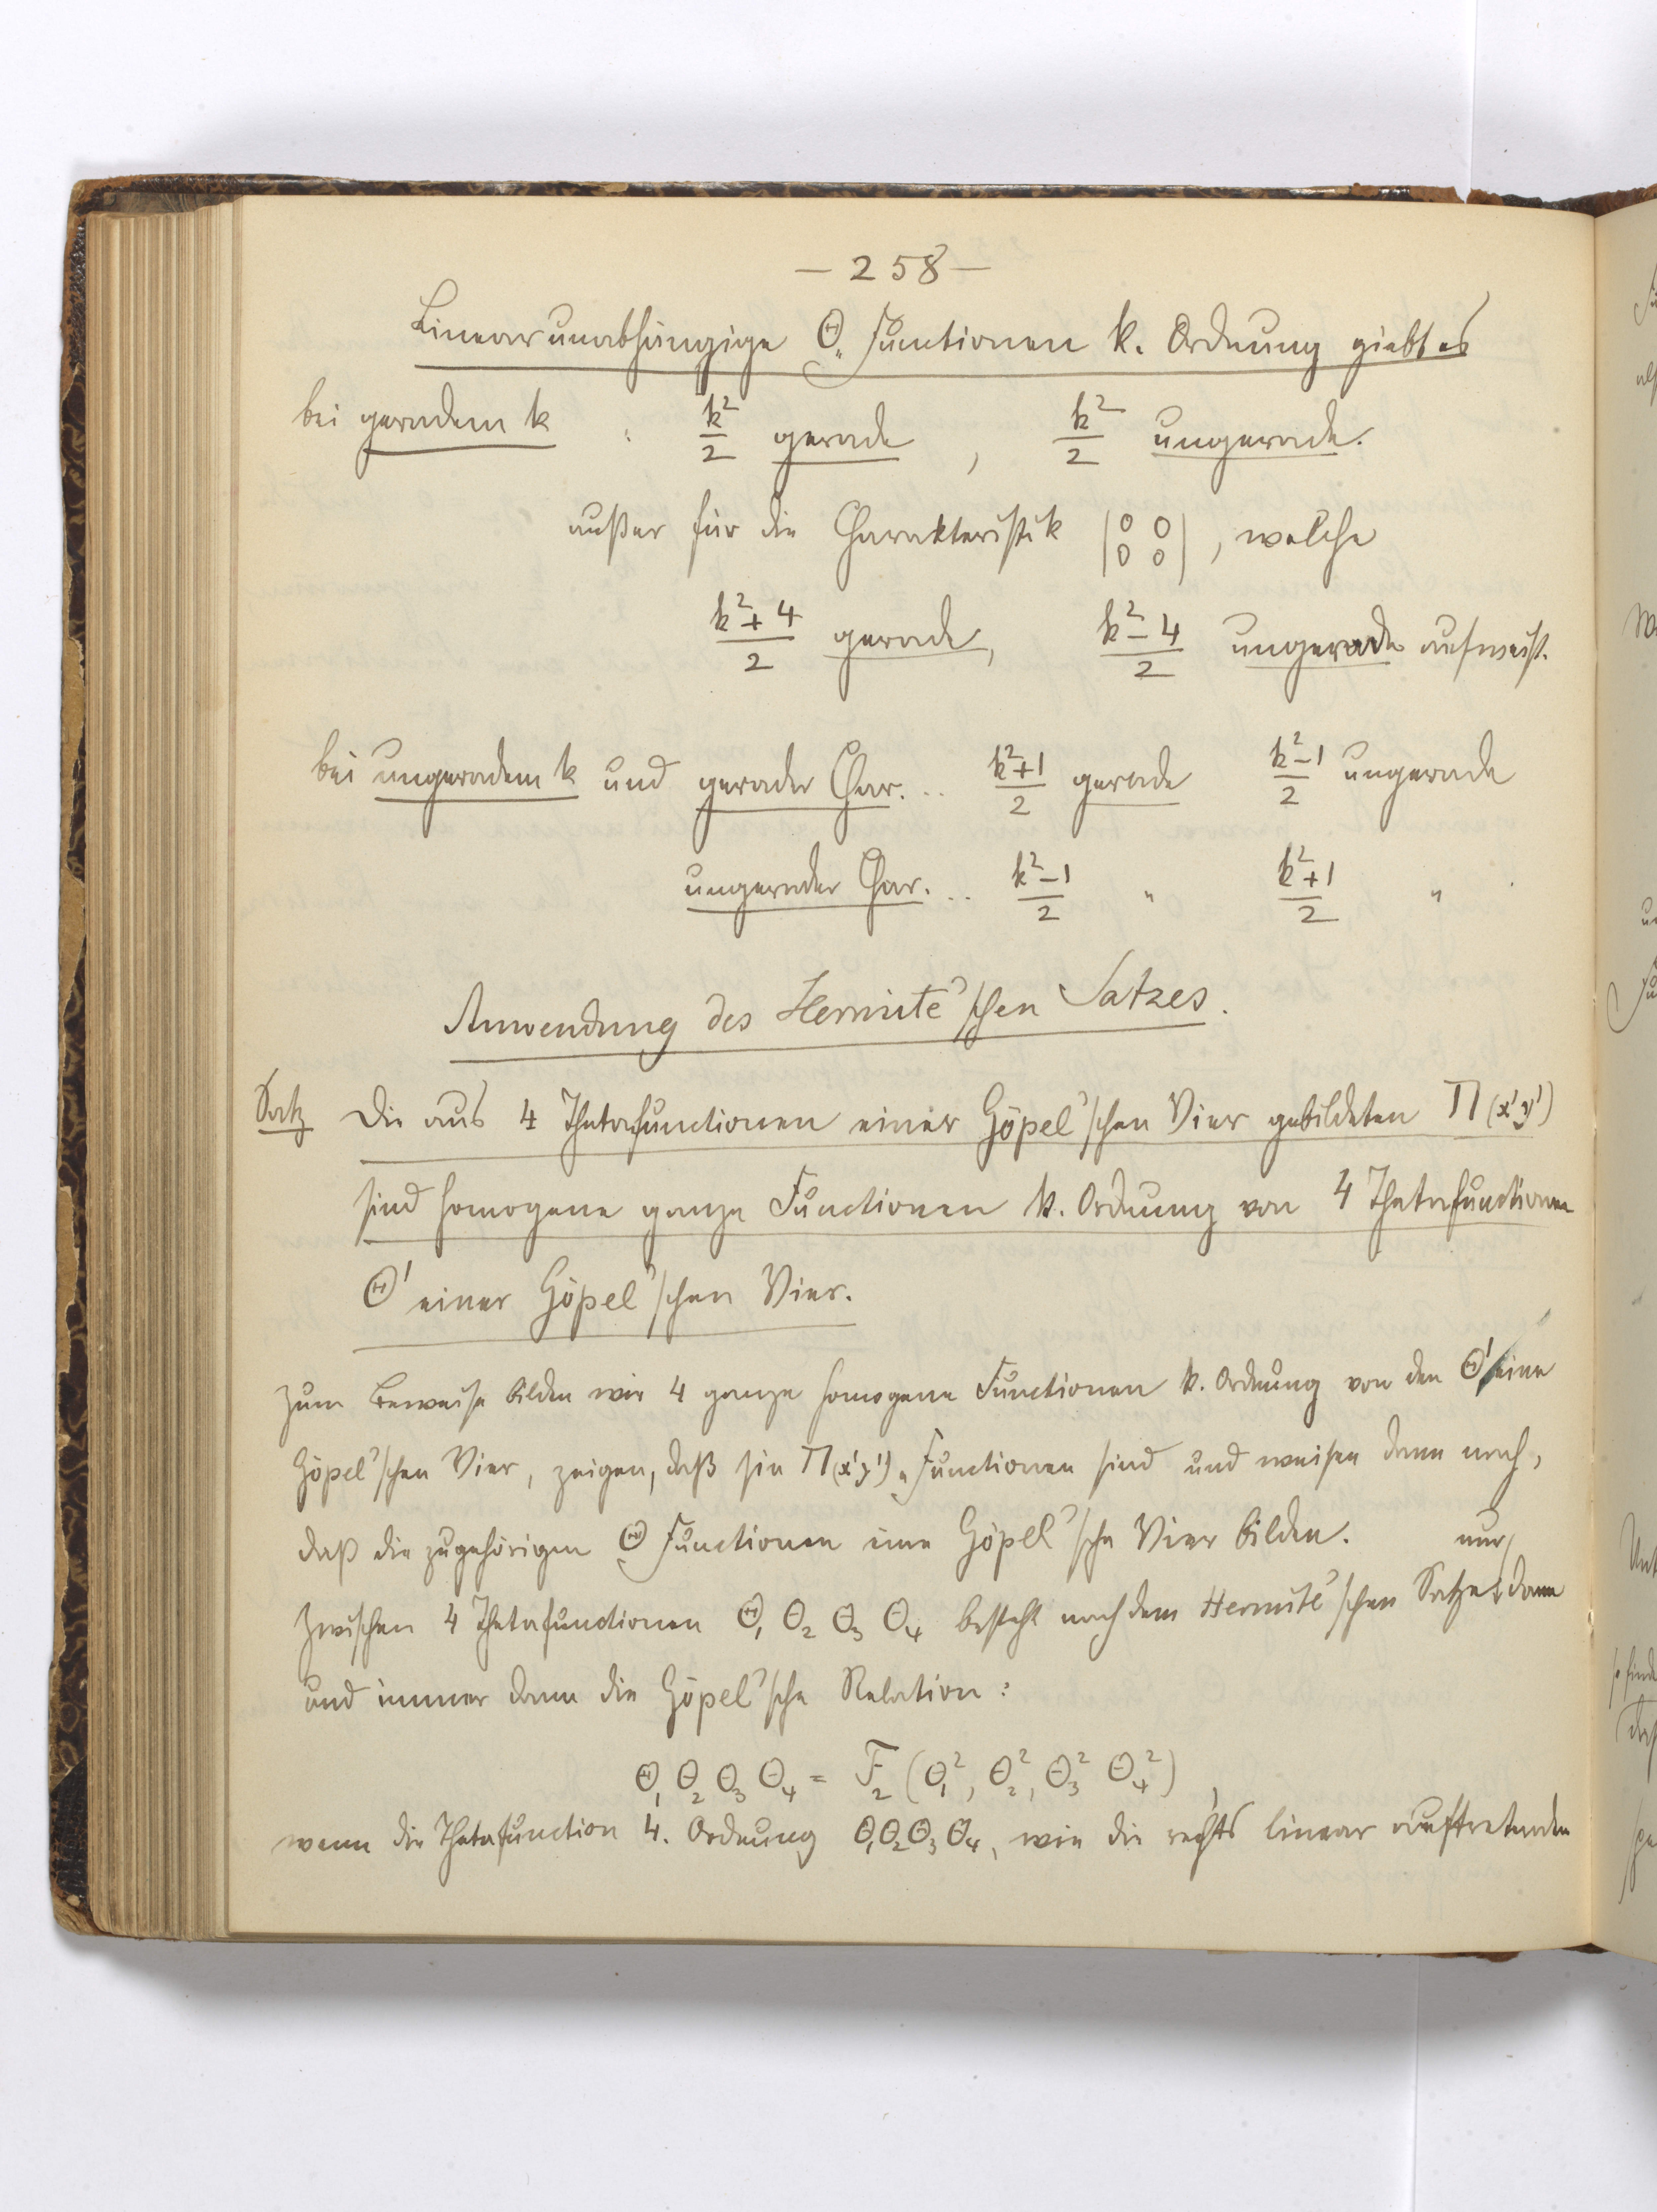 — 258 —
Linear unabhängige Θ„Functionen k. Ordnung giebt es
bei geradem k : k²/2 gerade , k²/2 ungerade.
außer für die Charakteristik |0 0 / 0 0| , welche
(k²+4)/2 gerade, (k²-4)/2 ungerade aufweist.
bei ungeradem k und gerader Char. .. (k²+1)/2 gerade (k²-1)/2 ungerade
ungerader Char. .. (k²-1)/2 „ (k²+1)/2 „
Anwendung des Hermite'schen Satzes.
Satz Die aus 4 Thetafunctionen einer Göpel'schen Vier gebildeten Π(x'y')
sind homogene ganze Functionen k. Ordnung von 4 Thetafunctionen
Θ' einer Göpel'schen Vier.
Zum Beweise bilden wir 4 ganze homogene Functionen k. Ordnung von den Θ' eine
Göpel'schen Vier, zeigen, daß sie Π(x'y')„Functionen sind und weisen dann nach,
daß die zugehörigen Θ Functionen eine Göpel'sche Vier bilden.
nur
Zwischen 4 Thetafunctionen Θ₁ Θ₂ Θ₃ Θ₄ besteht nach dem Hermite'schen Satze dann
und immer dann die Göpel'sche Relation:
Θ₁ Θ₂ Θ₃ Θ₄ = F₂ (Θ₁², Θ₂², Θ₃² Θ₄²) ,
wenn die Thetafunction 4. Ordnung Θ₁Θ₂Θ₃Θ₄, wie die rechts linear auftretenden